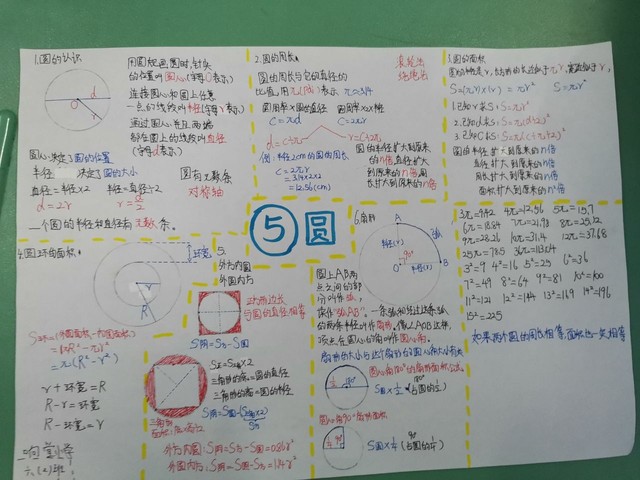 1.圆的认识
d
O
r
用圆规画圆时,针尖
的位置叫圆心(字母O表示)
连接圆心和圆上任意
一点的线段叫半径(字母r表示)
通过圆心,并且两端
都在圆上的线段叫直径
(字母d表示)
圆心:决定了圆的位置
半径 决定了圆的大小
直径=半径×2 半径=直径÷2
圆有无数条
对称轴
一个圆的半径和直径有无数条。
2.圆的周长
圆的周长与它的直径的
比值,用π(Pài)表示 π≈3.14
圆周率×圆的直径 圆周率×2×半径
C=πd C=2πr
d=C÷π r=C÷2π
例:半径2cm的圆的周长
C=2πr
=3.14×2×2
=12.56(cm)
圆的半径扩大到原来
的n倍直径扩大
到原来的n倍周
长扩大到原来的n倍
3.圆的面积
S=πr²
1.已知r求S:S=πr²
2.已知d求S:S=π(d÷2)²
3.已知C求S:S=π(C÷π÷2)²
圆的半径扩大到原来的n倍
直径扩大到原来的n倍
周长扩大到原来的n倍
面积扩大到原来的n²倍
⑤圆
4.圆环的面积
环宽
r
R
S环=(外圆面积-内圆面积)
=πR²-πr²
=π(R²-r²)
r+环宽=R
R-r=环宽
R-环宽=r
5.
外方内圆
外圆内方
正方形边长
与圆的直径相等
S阴=S方-S圆
S正=S三角×2
三角形的底=圆的直径
三角形的高=圆的半径
S阴=S圆-(S三角×2)
外方内圆:S阴=S方-S圆=0.86r²
外圆内方:S阴=S圆-S方=1.14r²
6.扇形
A
弧
半径(r)
O
半径(r)
B
圆上A,B两
点之间的部
分叫作弧,
读作"弧AB"。一条弧和经过这条弧
两端的两条半径叫作扇形,像∠AOB这样,
顶点在圆心的角叫作圆心角。
S圆×½(占圆的½)
圆心角90°的扇形面积
90°
S圆×¼(占圆的¼)
3π=9.42 4π=12.56 5π=15.7
6π=18.84 7π=21.98 8π=25.12
9π=28.26 10π=31.4 12π=37.68
25π=78.5 36π=113.04
3²=9 4²=16 5²=25 6²=36
7²=49 8²=64 9²=81 10²=100
11²=121 12²=144 13²=169 14²=196
15²=225
如果两个圆的周长相等,面积也一定相等